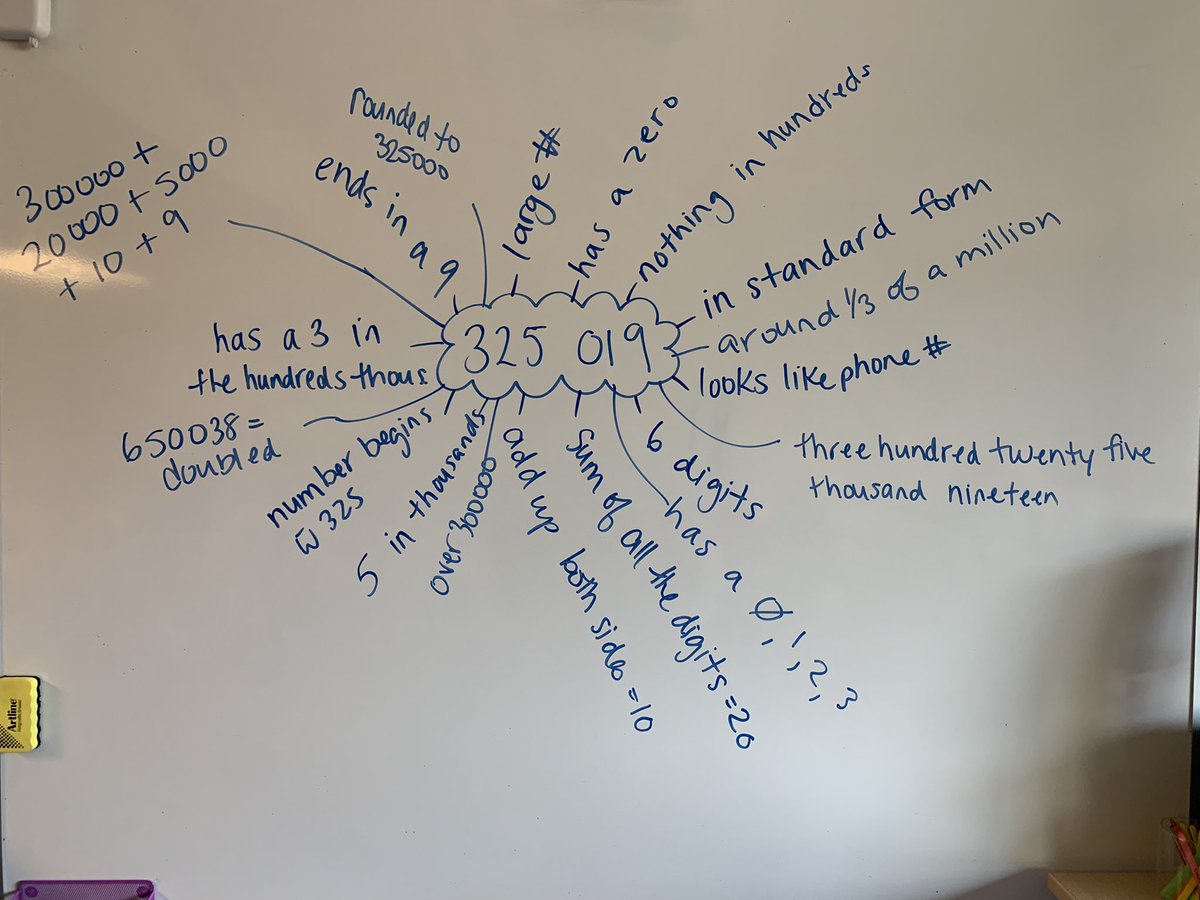 rounded to
325000
large #
has a zero
nothing in hundreds
300000 +
20000 + 5000
+ 10 + 9
ends in a 9
in standard form
around 1/3 of a million
looks like phone #
325 019
has a 3 in
the hundreds thous.
650038 =
doubled
number begins
w̄ 325
5 in thousands
over 300000
add up both sides = 10
sum of all the digits = 20
has a 0, 1, 2, 3
6 digits
three hundred twenty five
thousand nineteen
Artline